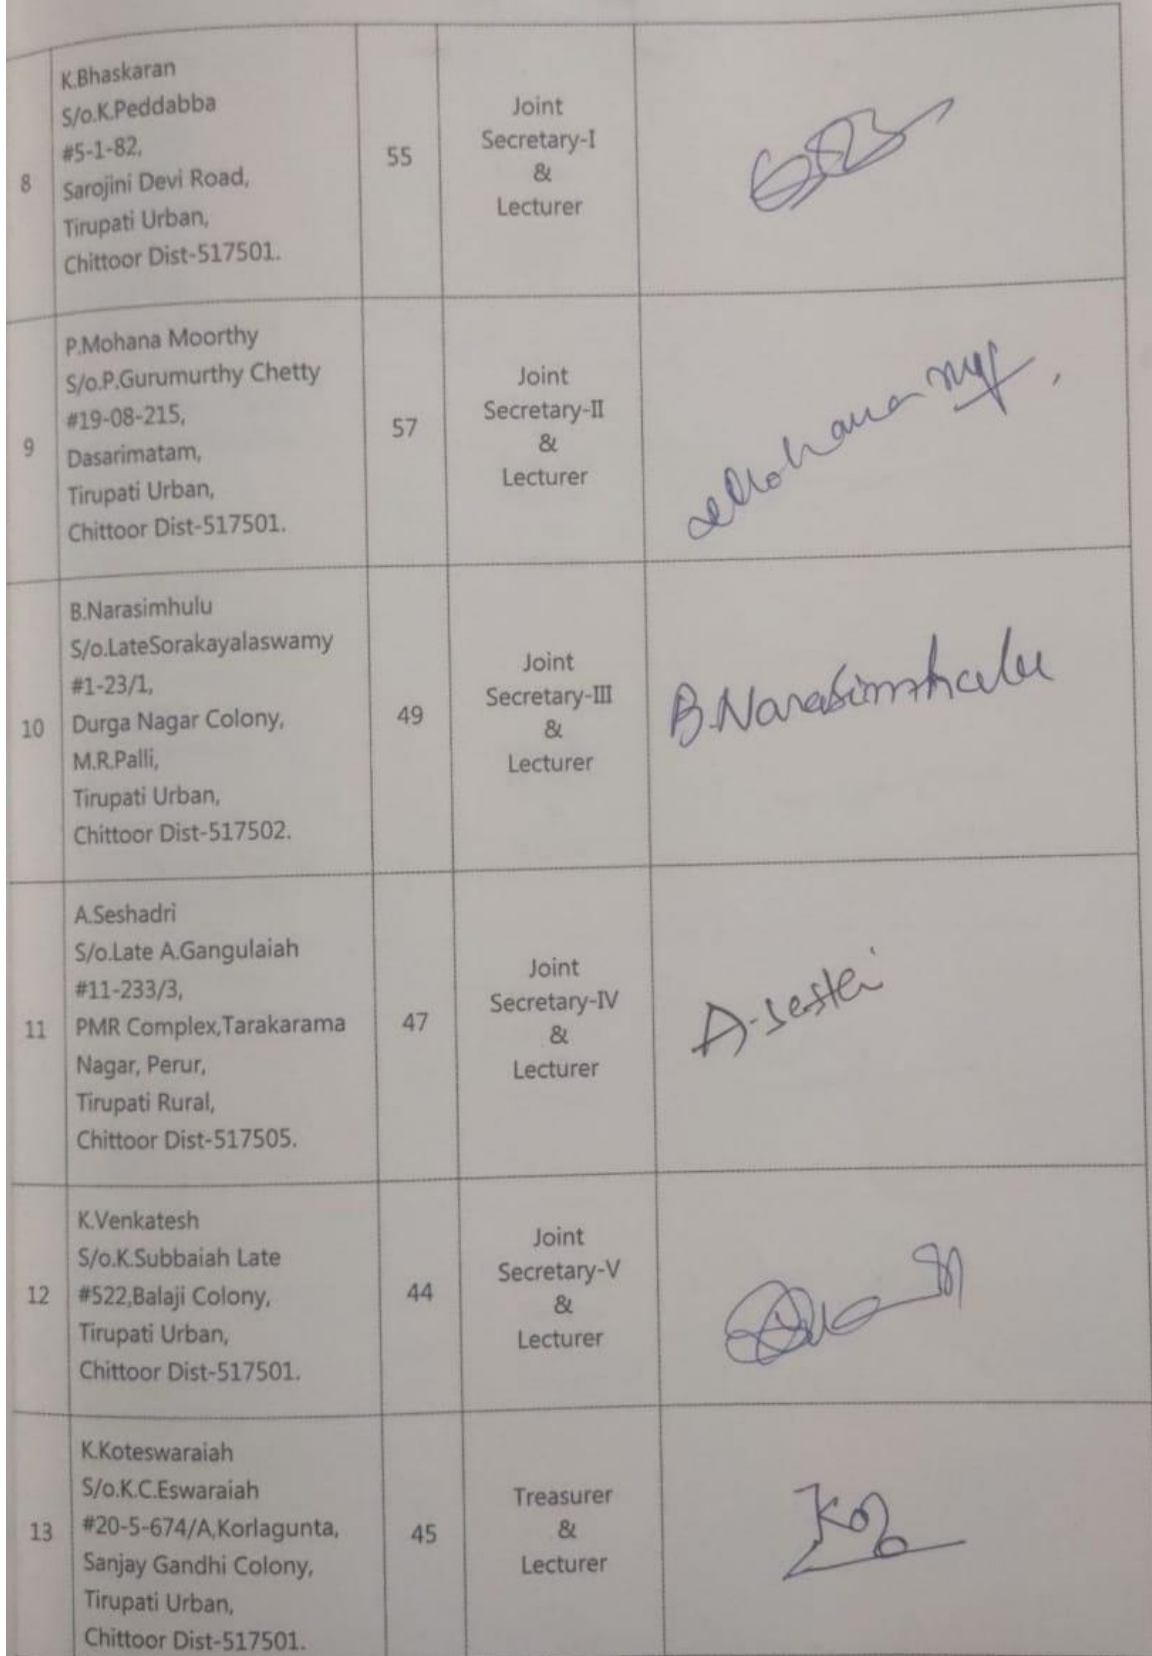 8
K.Bhaskaran
S/o.K.Peddabba
#5-1-82,
Sarojini Devi Road,
Tirupati Urban,
Chittoor Dist-517501.
55
Joint
Secretary-I
&
Lecturer
9
P.Mohana Moorthy
S/o.P.Gurumurthy Chetty
#19-08-215,
Dasarimatam,
Tirupati Urban,
Chittoor Dist-517501.
57
Joint
Secretary-II
&
Lecturer
10
B.Narasimhulu
S/o.LateSorakayalaswamy
#1-23/1,
Durga Nagar Colony,
M.R.Palli,
Tirupati Urban,
Chittoor Dist-517502.
49
Joint
Secretary-III
&
Lecturer
B.Narasimhulu
11
A.Seshadri
S/o.Late A.Gangulaiah
#11-233/3,
PMR Complex,Tarakarama
Nagar, Perur,
Tirupati Rural,
Chittoor Dist-517505.
47
Joint
Secretary-IV
&
Lecturer
12
K.Venkatesh
S/o.K.Subbaiah Late
#522,Balaji Colony,
Tirupati Urban,
Chittoor Dist-517501.
44
Joint
Secretary-V
&
Lecturer
13
K.Koteswaraiah
S/o.K.C.Eswaraiah
#20-5-674/A,Korlagunta,
Sanjay Gandhi Colony,
Tirupati Urban,
Chittoor Dist-517501.
45
Treasurer
&
Lecturer